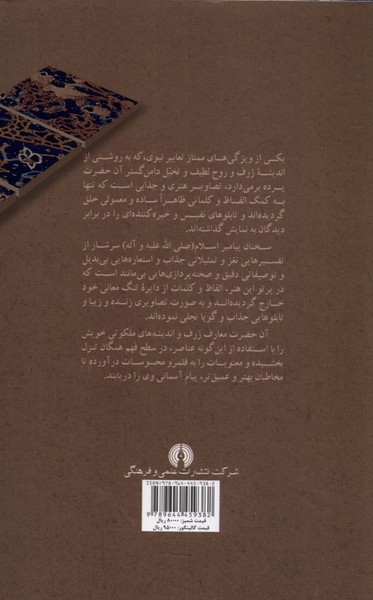 یکی از ویژگی‌های ممتاز تعابیر نبوی، که به روشنی از
اندیشهٔ ژرف و روح لطیف و تخیّل دامن‌گستر آن حضرت
پرده برمی‌دارد، تصاویر هنری و جذابی است که تنها
به کمک الفاظ و کلماتی ظاهراً ساده و معمولی خلق
گردیده‌اند و تابلوهای نفیس و خیره‌کننده‌ای را در برابر
دیدگان به نمایش گذاشته‌اند.
سخنان پیامبر اسلام(صلی الله علیه و آله) سرشار از
تفسیرهایی نغز و تمثیلاتی جذاب و استعاره‌هایی بی‌بدیل
و توصیفاتی دقیق و صحنه‌پردازی‌هایی بی‌مانند است که
در پرتو این هنر، الفاظ و کلمات از دایرهٔ تنگ معانی خود
خارج گردیده‌اند و به صورت تصاویری زنده و زیبا و
تابلوهایی جذاب و گویا تجلی نموده‌اند.
آن حضرت معارف ژرف و اندیشه‌های ملکوتی خویش
را با استفاده از این‌گونه عناصر، در سطح فهم همگان تنزل
بخشیده و معنویات را به قلمرو محسوسات درآورده تا
مخاطبان بهتر و عمیق‌تر، پیام آسمانی وی را دریابند.
شرکت انتشارات علمی و فرهنگی
ISBN 978-964-445-938-2
9 789644 459382
قیمت شمیز: ۸۰۰۰۰ ریال
قیمت گالینگور: ۹۵۰۰۰ ریال